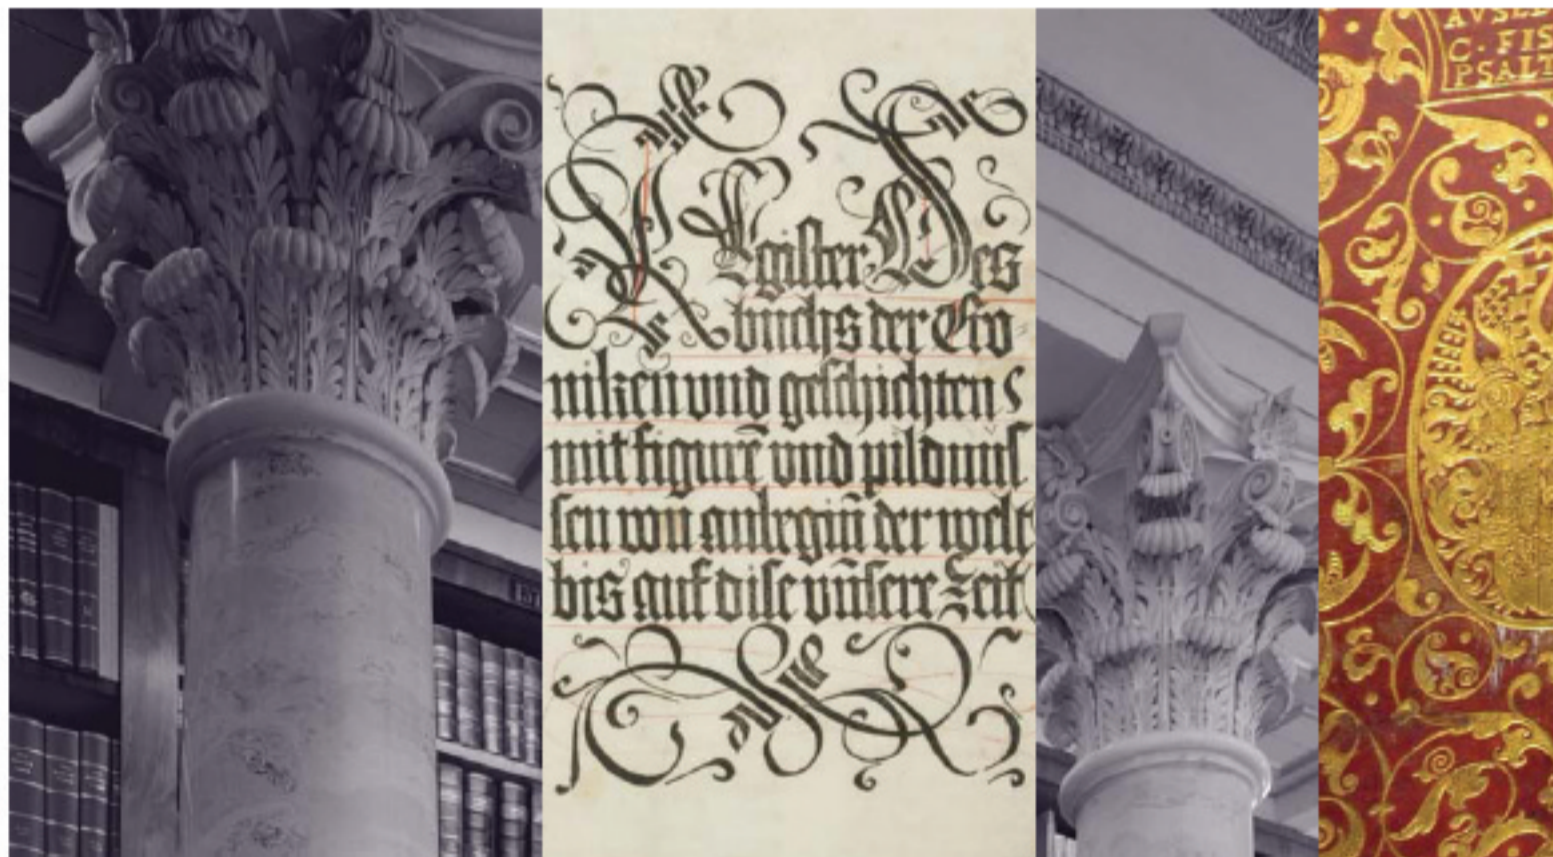 Register Des
buchs der Cro
niken vnd geschichten
mit figurẽ vnd pildnus
sen von anbegiñ der welt
bis auf dise vñsere Zeit
AVSLE
C· FIS
PSALT